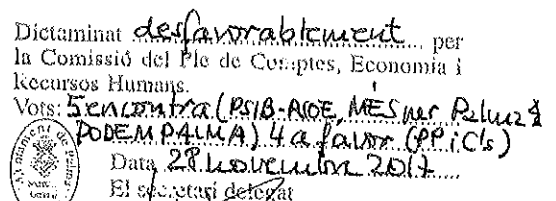 Dictaminat desfavorablement per
la Comissió del Ple de Comptes, Economia i
Recursos Humans.
Vots: 5 en contra (PSIB-PSOE, MÉS per Palma i
PODEM PALMA) 4 a favor (PP i C's)
Data 28 novembre 2017
El secretari delegat